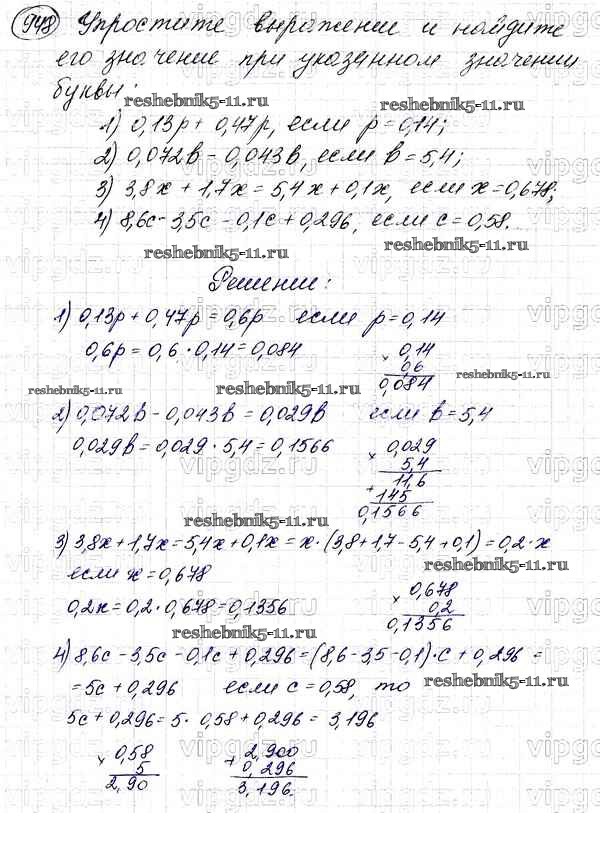 948 Упростите выражение и найдите
его значение при указанном значении
буквы:
reshebnik5-11.ru
1) 0,13p + 0,47p, если p = 0,14;
2) 0,072в - 0,043в, если в = 5,4;
3) 3,8x + 1,7x = 5,4x + 0,1x, если x = 0,678;
4) 8,6c - 3,5c - 0,1c + 0,296, если c = 0,58.
reshebnik5-11.ru
Решение:
1) 0,13p + 0,47p = 0,6p если p = 0,14
0,6p = 0,6 · 0,14 = 0,084
× 0,14
0,6
0,084
reshebnik5-11.ru
reshebnik5-11.ru reshebnik5-11.ru
2) 0,072в - 0,043в = 0,029в если в = 5,4
0,029в = 0,029 · 5,4 = 0,1566
× 0,029
5,4
11,6
+ 145
0,1566
reshebnik5-11.ru
3) 3,8x + 1,7x = 5,4x + 0,1x = x · (3,8 + 1,7 - 5,4 + 0,1) = 0,2 · x
reshebnik5-11.ru
если x = 0,678
0,2x = 0,2 · 0,678 = 0,1356
× 0,678
0,2
0,1356
reshebnik5-11.ru
4) 8,6c - 3,5c - 0,1c + 0,296 = (8,6 - 3,5 - 0,1) · c + 0,296 =
= 5c + 0,296 если c = 0,58, то
reshebnik5-11.ru
5c + 0,296 = 5 · 0,58 + 0,296 = 3,196
× 0,58
5
2,90
+ 2,900
0,296
3,196.
vipgdz.ru